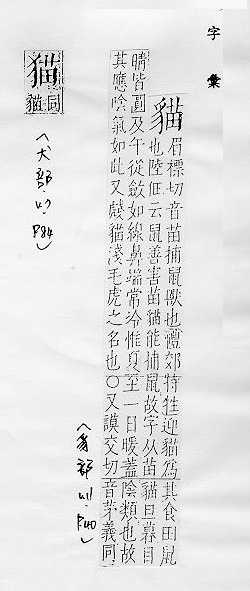 字彙
貓眉標切音苗捕鼠獸也禮郊特牲迎貓爲其食田鼠
也陸佃云鼠善害苗貓能捕鼠故字从苗貓旦暮目
睛皆圓及午從斂如線鼻端常冷惟夏至一日暖蓋陰類也故
其應陰氣如此又虦貓淺毛虎之名也○又謨交切音茅義同
〈豸部 P40〉
猫同貓
〈犬部 P84〉